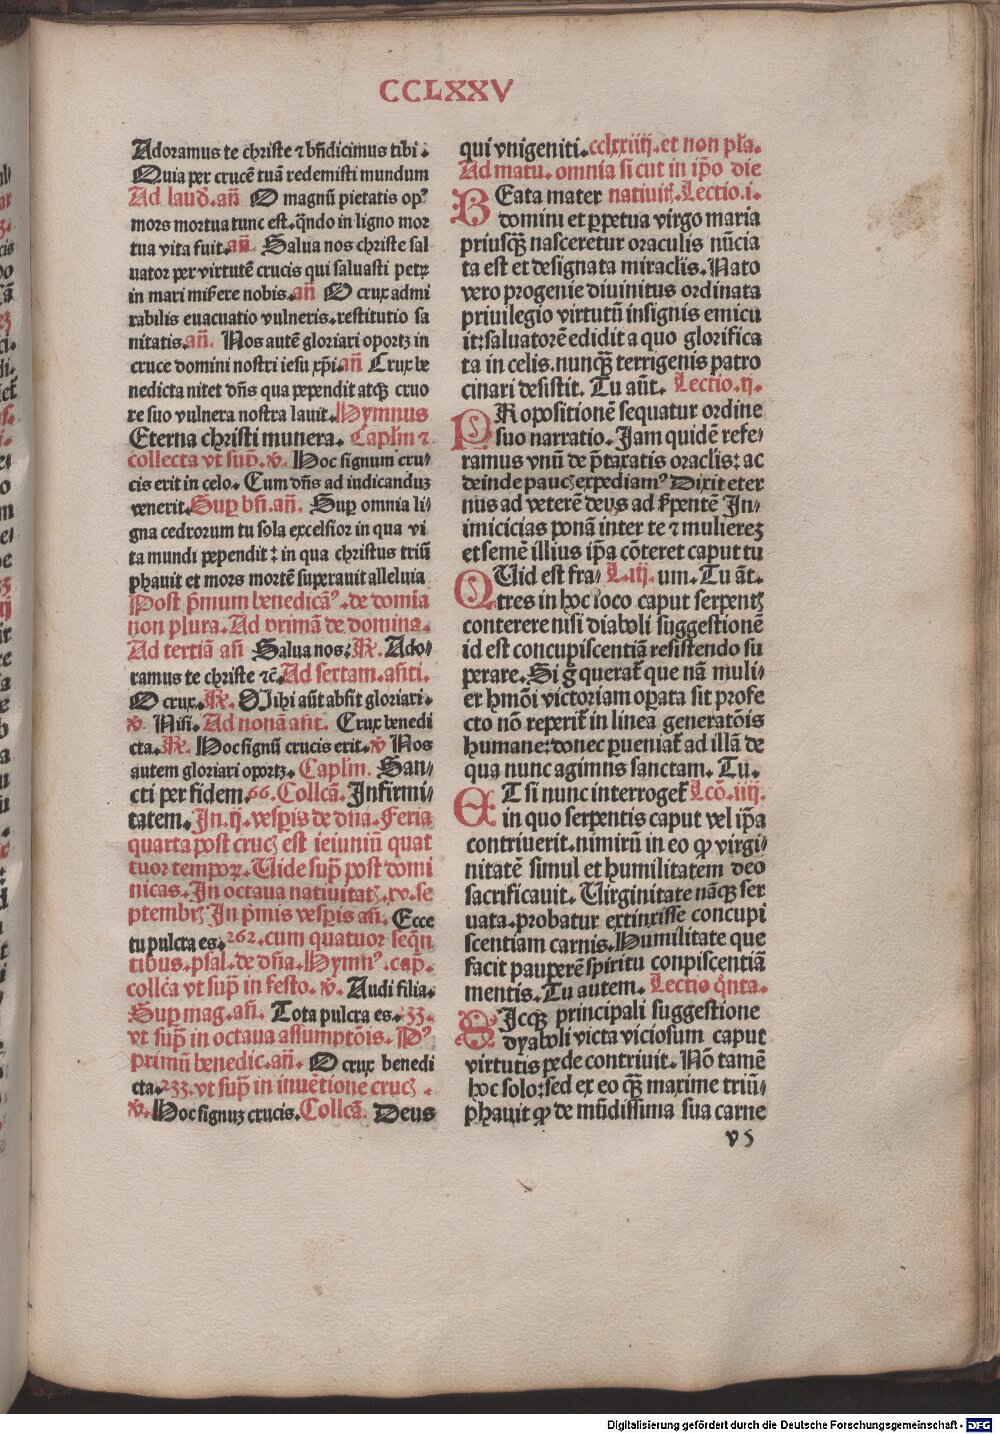 CCLXXV
Adoramus te christe ⁊ bñdicimus tibi.
Quia per crucẽ tuã redemisti mundum
Ad laud̓. añ O magnũ pietatis opꝰ
mors mortua tunc est. qñdo in ligno mor
tua vita fuit. añ. Salua nos christe sal
uator per virtutẽ crucis qui saluasti petꝝ
in mari mis̃ere nobis. añ O crux admi
rabilis euacuatio vulneris. restitutio sa
nitatis. añ. Nos autẽ gloriari oportꝫ in
cruce domini nostri iesu xp̃i. añ Crux be
nedicta nitet dñs qua pependit atqꝫ cruo
re suo vulnera nostra lauit. Hymnus
Eterna christi munera. Capl̃m ⁊
collecta vt sup̃. ꝟ. Hoc signum cru/
cis erit in celo. Cum dñs ad iudicanduꝫ
venerit. Suꝑ bñ. añ. Suꝑ omnia li/
gna cedrorum tu sola excelsior in qua vi
ta mundi pependit: in qua christus triũ
phauit et mors mortẽ superauit alleluia
Post p̃mum benedicãꝰ. de domĩa
non plura. Ad primã de domina.
Ad tertiã añ Salua nos: ℟. Ado/
ramus te christe ⁊c̃. Ad sextam. añti.
O crux. ℟. Mihi aũt absit gloriari.
ꝟ. Nisi. Ad nonã añt. Crux benedi
cta. ℟. Hoc signũ crucis erit. ꝟ Nos
autem gloriari oportꝫ. Capl̃m. San/
cti per fidem. 66. Collcã. Infirmi/
tatem. In. ij. vesp̃is de dña. Feria
quarta post crucꝭ est ieiuniũ quat
tuor tempoꝝ. Vide sup̃ post domi
nicas. In octaua natiuitatꝭ. xv. se
ptembrꝭ In p̃mis vesp̃is añ. Ecce
tu pulcra es. 262. cum quatuor seq̃n
tibus. psal. de dña. Hymnꝰ. cap̃.
collcã vt sup̃ in festo. ꝟ. Audi filia.
Suꝑ mag. añ. Tota pulcra es. 233.
vt sup̃ in octaua assumptõis. Pꝰ
primũ benedic. añ. O crux benedi
cta. 233. vt sup̃ in inuẽtione crucꝭ.
ꝟ. Hoc signuꝫ crucis. Collcã. Deus
qui vnigeniti. cclxxiiij. et non pl̃a.
Ad matu. omnia sicut in ip̃o die
BEata mater natiuit̃. Lectio. i.
domini et ꝑpetua virgo maria
priusqꝫ nasceretur oraculis nũcia
ta est et designata miraclis. Nato
vero progenie diuinitus ordinata
priuilegio virtutũ insignis emicu
it: saluatorẽ edidit a quo glorifica
ta in celis. nunqꝫ terrigenis patro
cinari desistit. Tu aũt. Lectio. ij.
PRopositionẽ sequatur ordine
suo narratio. Jam quidẽ refe/
ramus vnũ de p̃taxatis oraclis: ac
deinde paucꝭ expediamꝰ Dixit eter
nus ad veterẽ deus ad s̃pentẽ In/
imicicias ponã inter te ⁊ mulierez
et semẽ illius ip̃a cõteret caput tu
QUid est fra/ L. iij. um. Tu ãt.
tres in hoc loco caput serpentꝭ
conterere nisi diaboli suggestionẽ
id est concupiscentiã resistendo su
perare. Si g̃ querat̃ que nã muli/
er hmõi victoriam oꝑata sit profe
cto nõ reperit̃ in linea generatõis
humane: donec ꝑueniat̃ ad illã de
qua nunc agimns sanctam. Tu.
ET si nunc interroget̃ Lcõ. iiij.
in quo serpentis caput vel ip̃a
contriuerit. nimirũ in eo ꝙ virgi/
nitatẽ simul et humilitatem deo
sacrificauit. Virginitate nãqꝫ ser
uata. probatur extinxisse concupi
scentiam carnis. Humilitate que
facit pauperẽ spiritu conpiscentiã
mentis. Tu autem. Lectio q̃nta.
SIcqꝫ principali suggestione
dyaboli victa viciosum caput
virtutis pede contriuit. Nõ tamẽ
hoc solo: sed et eo qꝫ maxime triũ/
phauit ꝙ de mũdissima sua carne
v 5
Digitalisierung gefördert durch die Deutsche Forschungsgemeinschaft - DFG